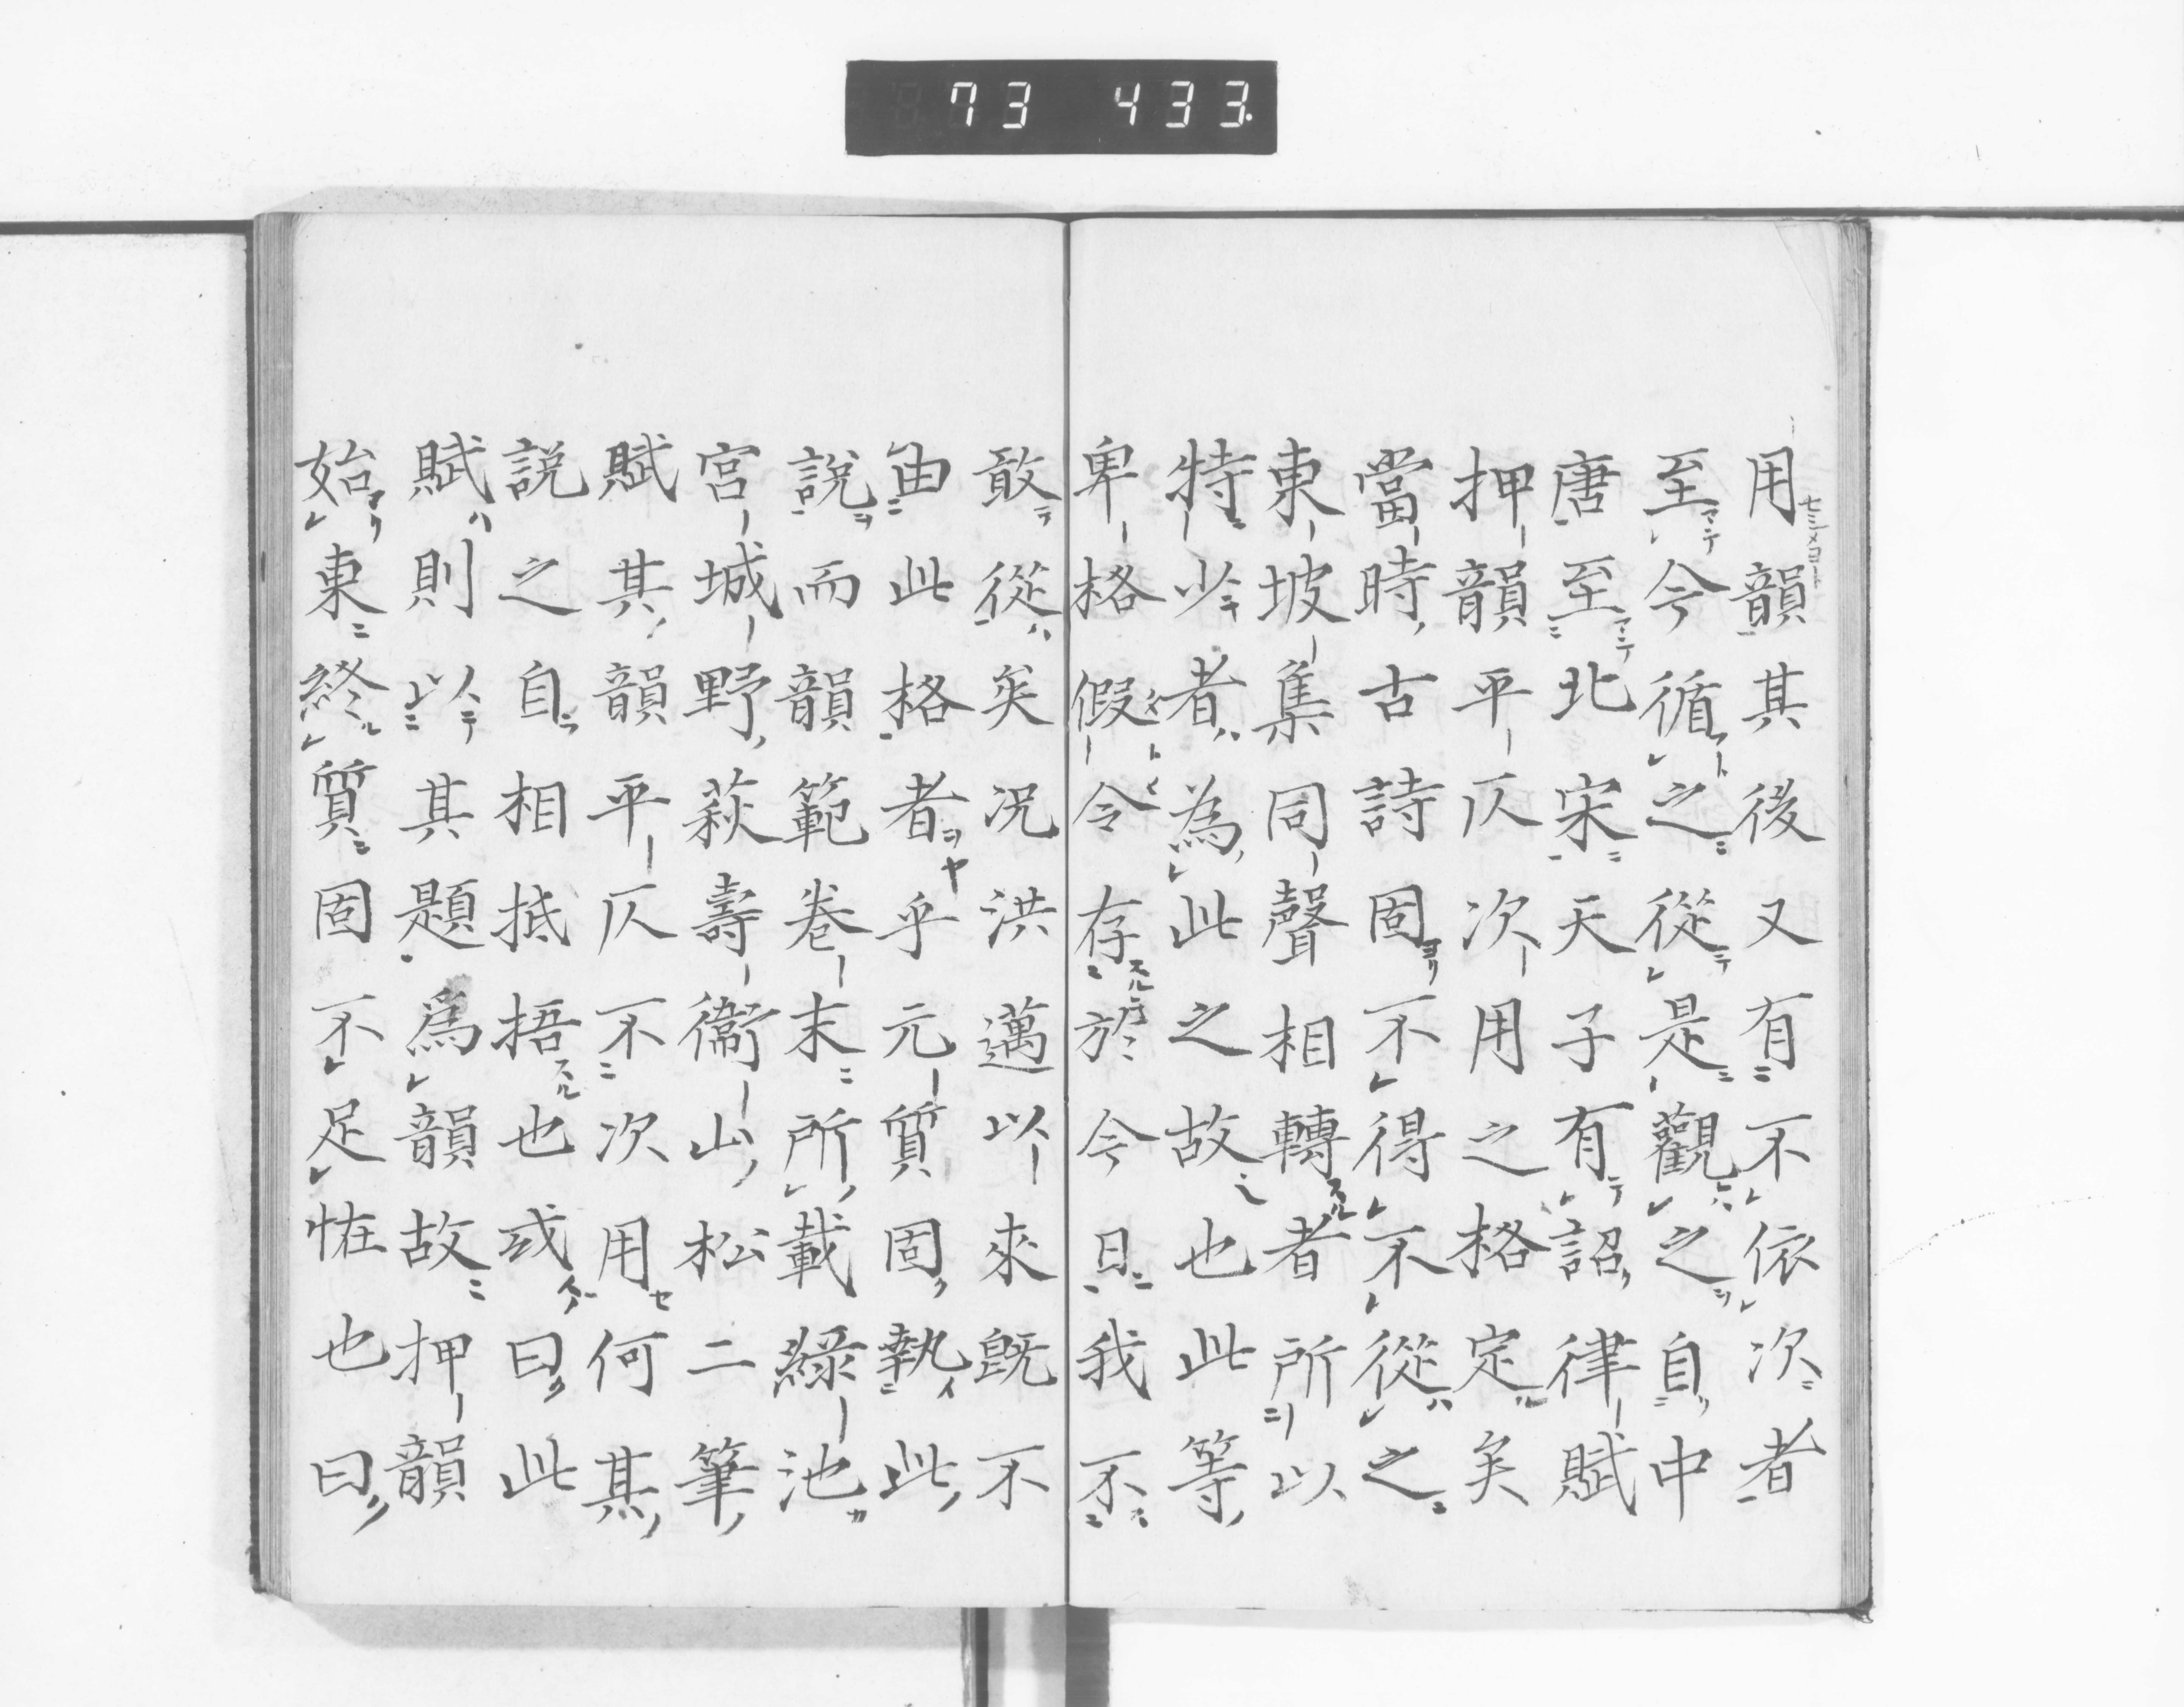 73 433.
用韻其後又有不依次者
至今循之從是觀之自中
唐至北宋天子有詔律賦
押韻平仄次用之格定矣
當時古詩固不得不從之
東坡集同聲相轉者所以
特少者為此之故也此等
卑格假令存於今日我不
敢從矣况洪邁以來既不
由此格者乎元質固執此
說而韻範卷末所載綠池
宮城野萩壽衞山松二筆
賦其韻平仄不次用何其
説之自相抵捂也或曰此
賦則以其題爲韻故押韻
始東終質固不足恠也曰